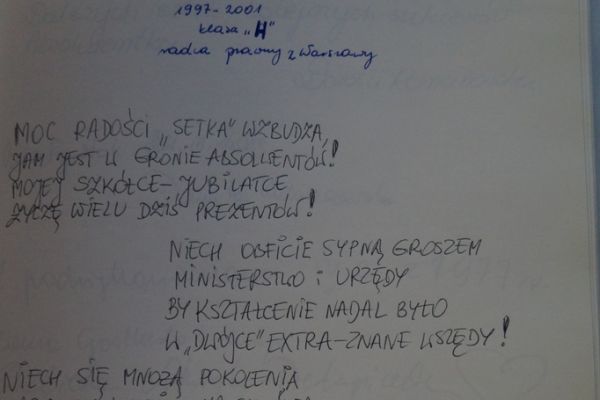 1997-2001
klasa „H"
radca prawny z Warszawy
MOC RADOŚCI „SETKA" WZBUDZA,
JAM JEST W GRONIE ABSOLWENTÓW!
MOJEJ SZKÓŁCE-JUBILATCE
ŻYCZĘ WIELU DZIŚ PREZENTÓW!
NIECH OBFICIE SYPNĄ GROSZEM
MINISTERSTWO i URZĘDY
BY KSZTAŁCENIE NADAL BYŁO
W „DWÓJCE" EXTRA-ZNANE WSZĘDY!
NIECH SIĘ MNOŻĄ POKOLENIA